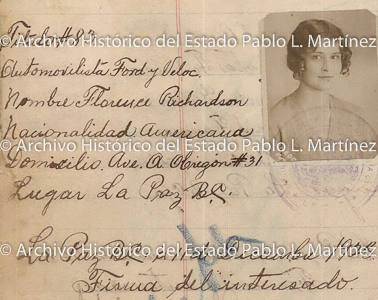 © Archivo Histórico del Estado Pablo L. Martínez
Automovilista Ford y Veloc.
Nombre Florence Richardson
Nacionalidad Americana
© Archivo Histórico del Estado Pablo L. Martínez
Domicilio. Ave. A. Obregon #31
Lugar La Paz B.C.
La Paz
© Archivo Histórico del Estado Pablo L. Martínez
Firma del interesado.